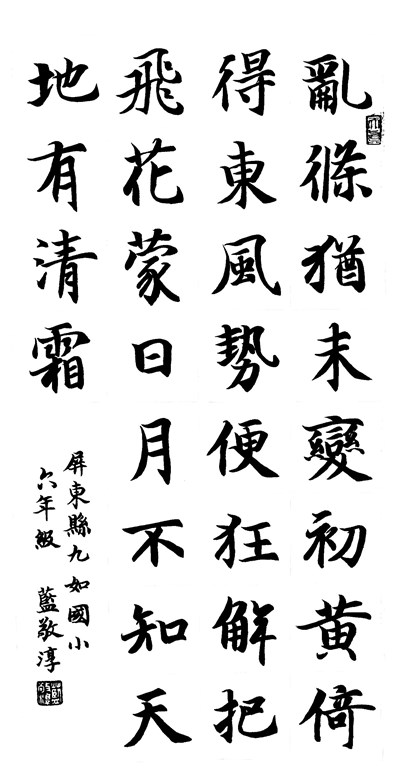 亂條猶末變初黃倚
得東風勢便狂解把
飛花蒙日月不知天
地有清霜
屏東縣九如國小
六年級 藍敬淳